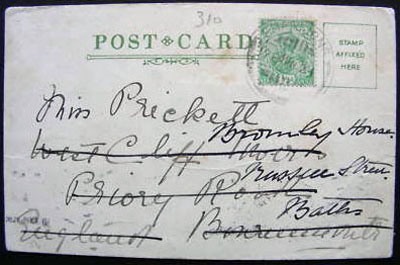 310
POST CARD
STAMP
AFFIXED
HERE
Miss Prickett
Bromley House
West Cliff
Russell Street
Priory Road
Bath
England Bournemouth